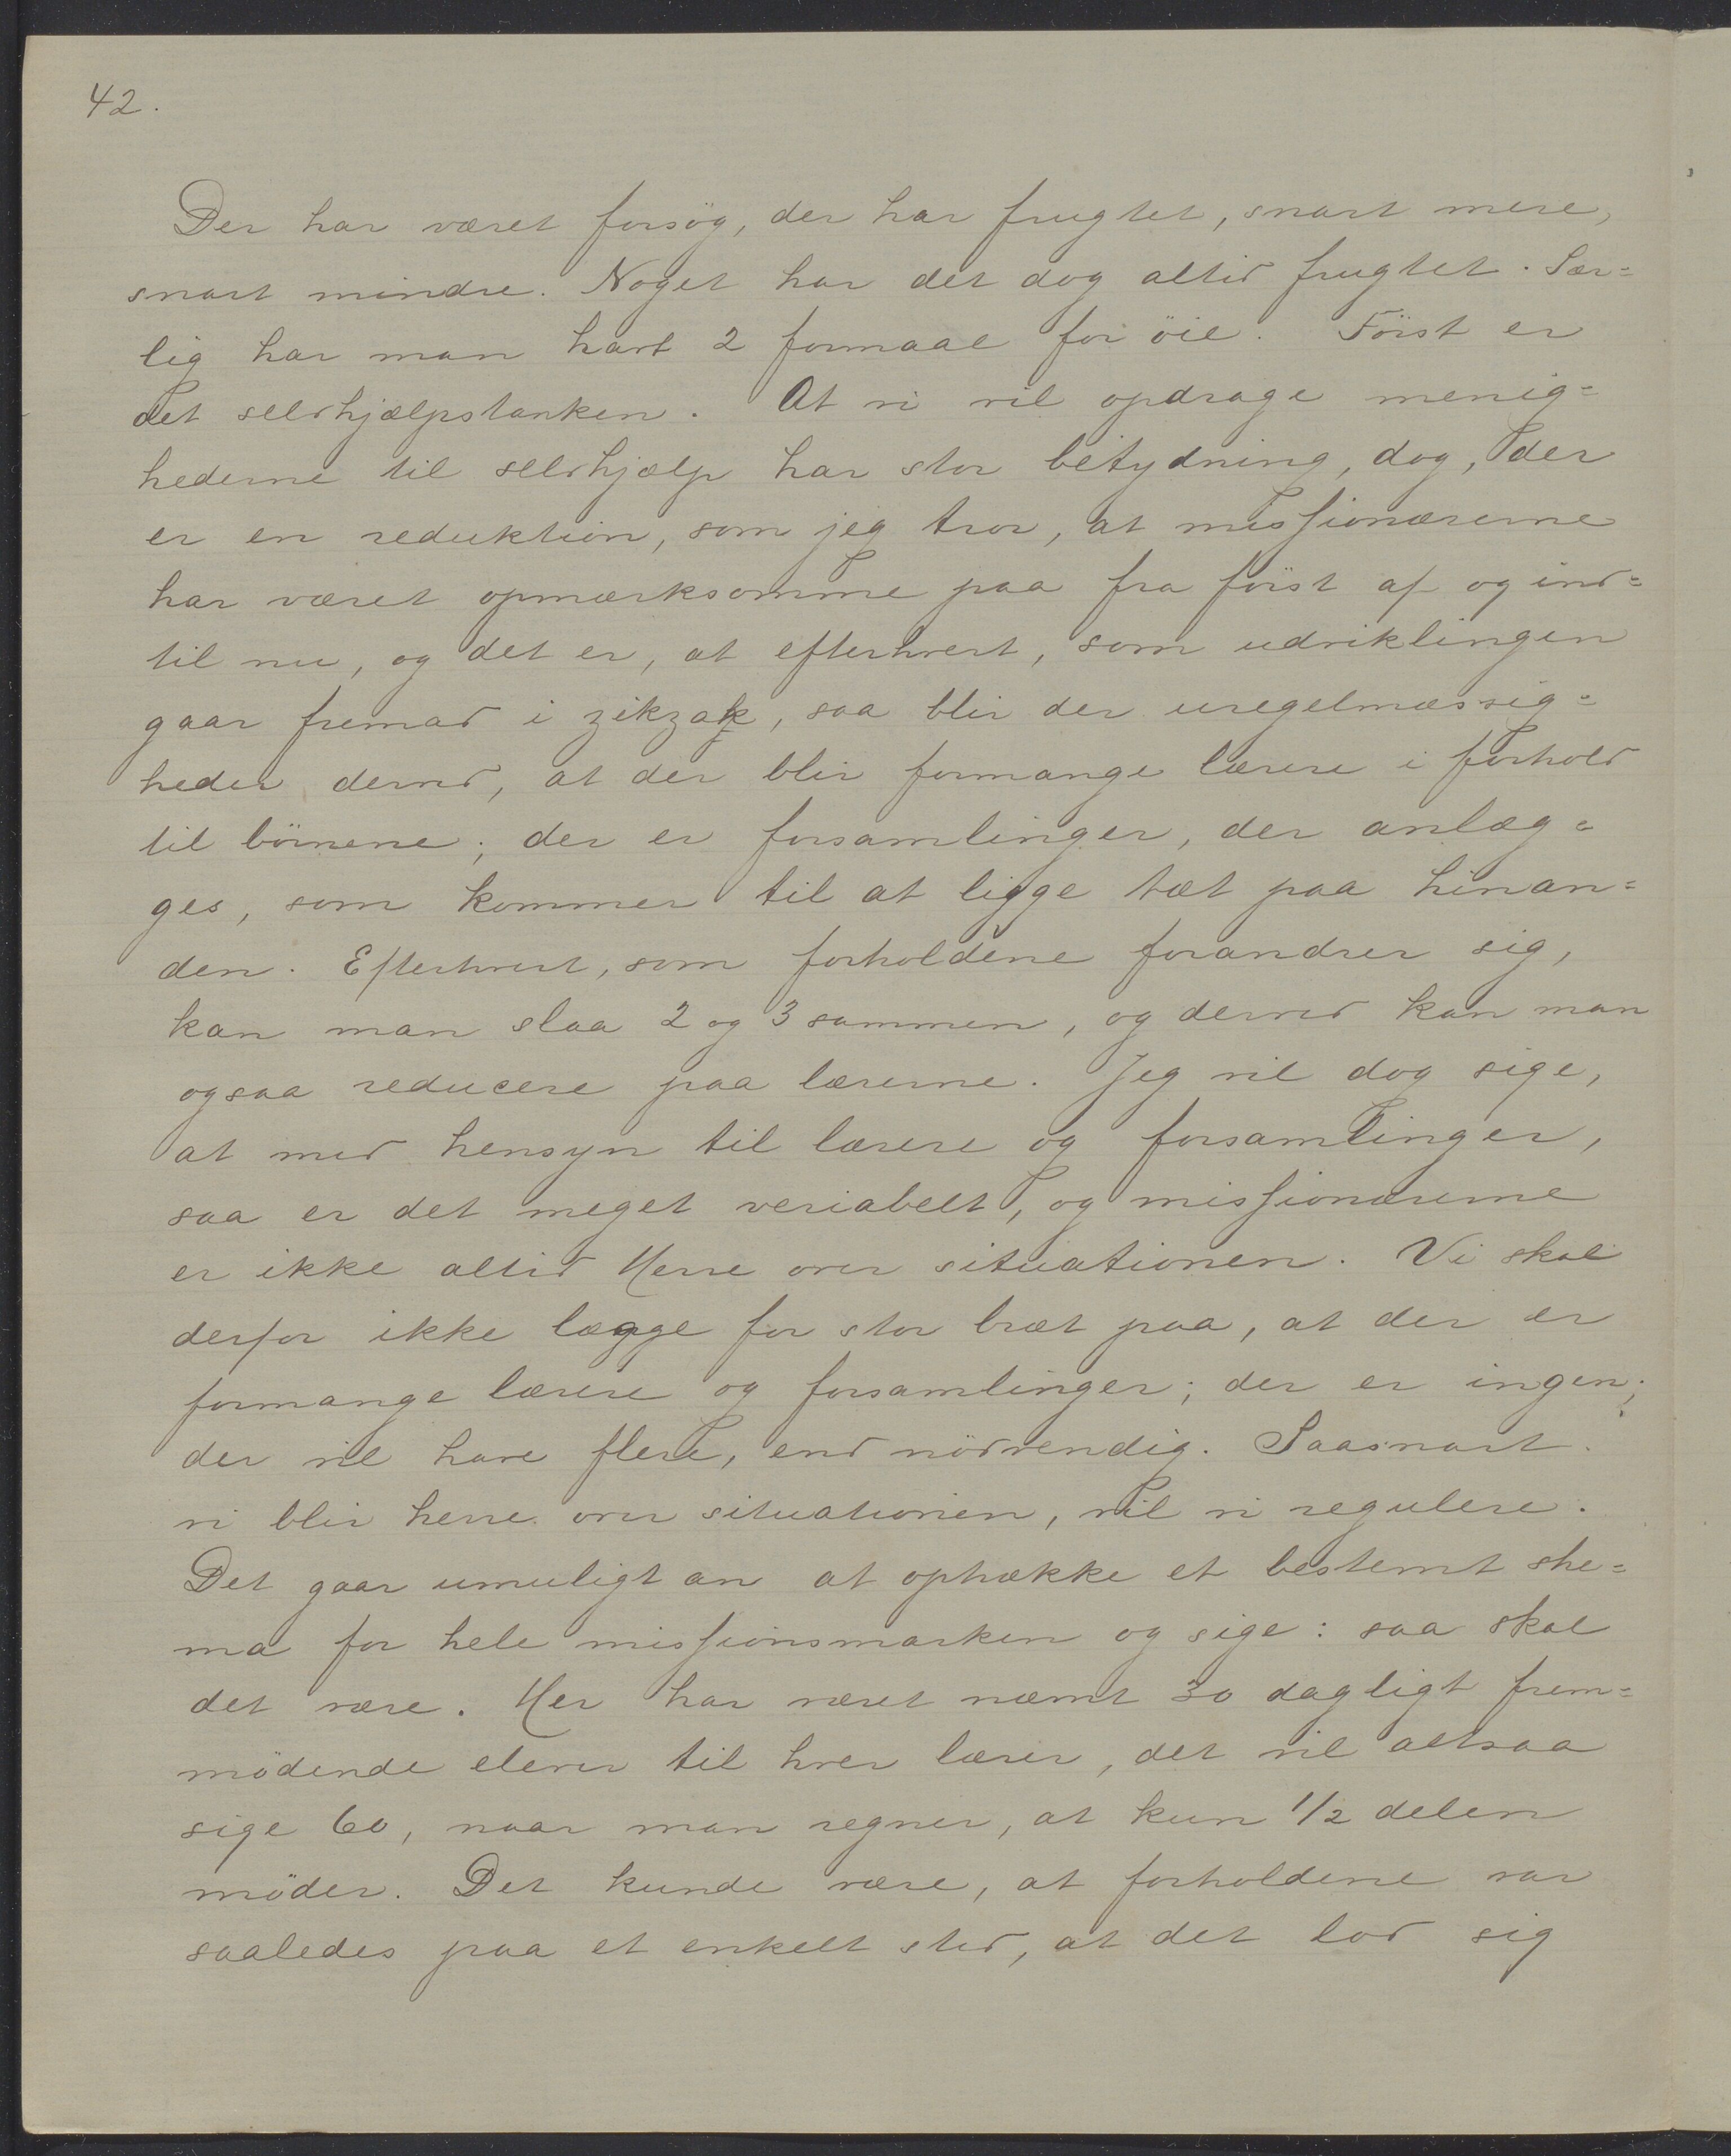 42.
Der har været forsög, der har frugtet, snart mere,
snart mindre. Noget har det dog altid frugtet. Sær=
lig har man havt 2 formaal for öie. Först er
det selvhjælpstanken. At vi vil opdrage menig=
hederne til selvhjælp har stor betydning, dog, der
er en reduktion, som jeg tror, at missionærerne
har været opmærksomme paa fra först af og ind=
til nu, og det er, at efterhvert, som udviklingen
gaar fremad i zikzak, saa blir der uregelmæssig=
heder derved, at der blir formange lærere i forhold
til börnene; der er forsamlinger, der anlæg=
ges, som kommer til at ligge tæt paa hinan=
den. Efterhvert, som forholdene forandrer sig,
kan man slaa 2 og 3 sammen, og derved kan man
ogsaa reducere paa lærerne. Jeg vil dog sige,
at med hensyn til lærere og forsamlinger,
saa er det meget veriabelt, og missionærerne
er ikke altid Herre over situationen. Vi skal
derfor ikke lægge for stor bræt paa, at der er
formange lærere og forsamlinger; der er ingen;
der vil have flere, end nödvendig. Saasnart
vi blir herre over situationen, vil vi regulere.
Det gaar umuligt an at optrække et bestemt she=
ma for hele missionsmarken og sige: saa skal
det være. Her har været nævnt 30 dagligt frem=
mödende elever til hver lærer, det vil altsaa
sige 60, naar man regner, at kun 1/2 delen
möder. Det kunde være, at forholdene var
saaledes paa et enkelt sted, at det lod sig